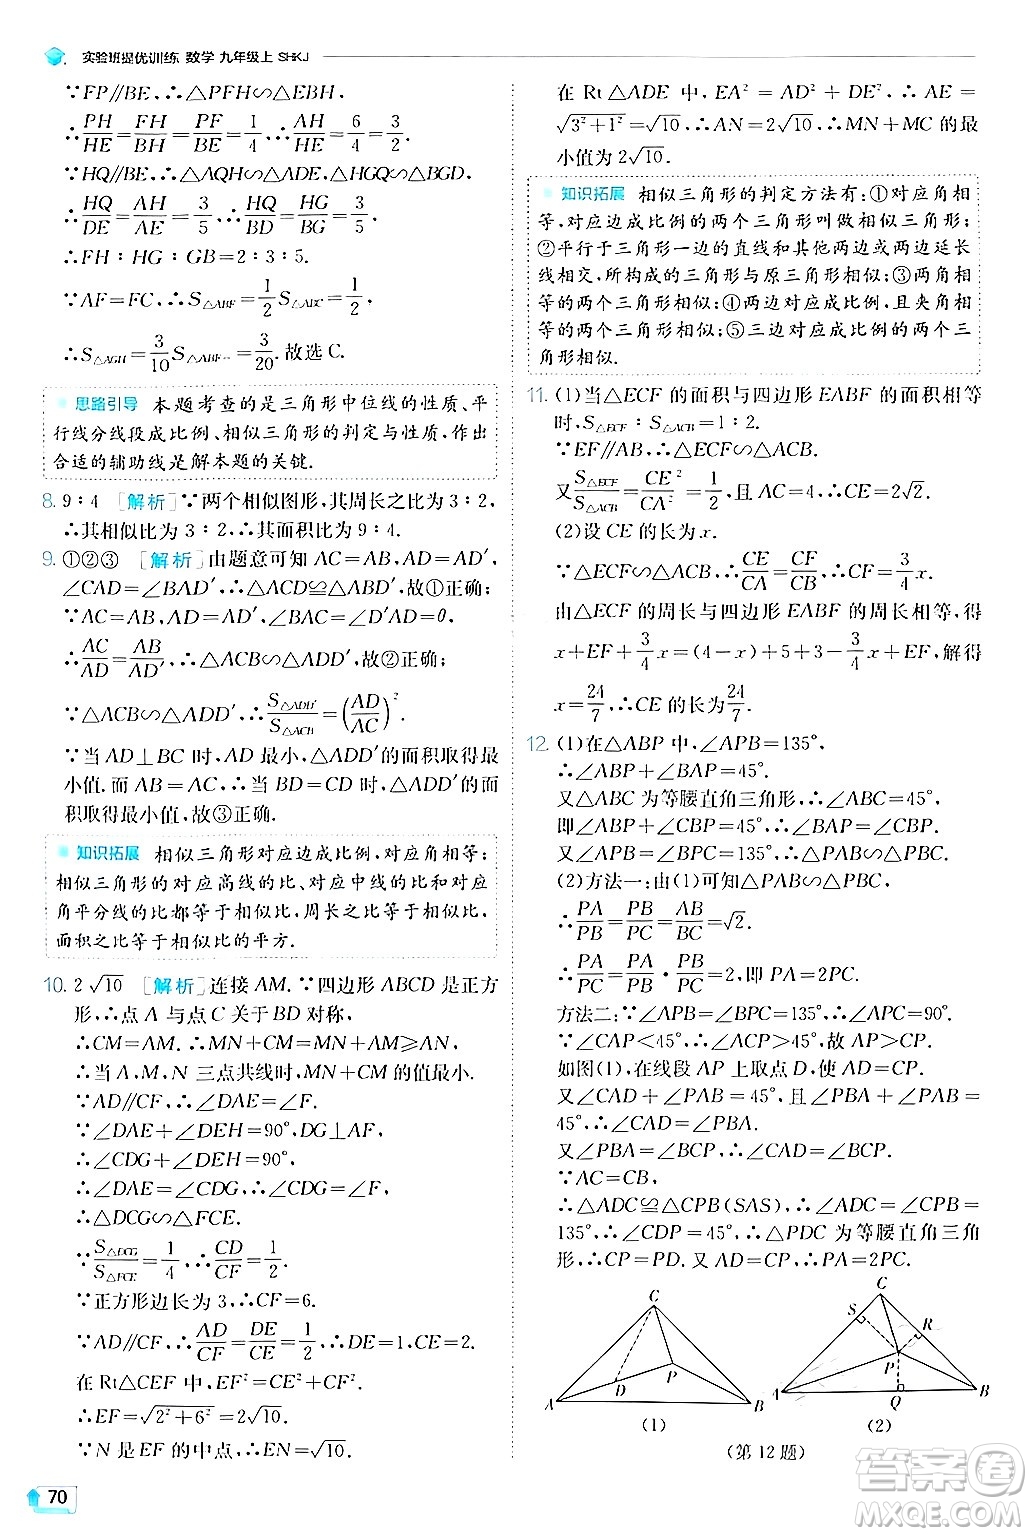 实验班提优训练 数学 九年级上 SHKJ
∵FP//BE,∴△PFH∽△EBH,
∴PH/HE=FH/BH=PF/BE=1/4,∴AH/HE=6/4=3/2.
∵HQ//BE,∴△AQH∽△ADE,△HGQ∽△BGD.
∴HQ/DE=AH/AE=3/5,∴HQ/BD=HG/BG=3/5.
∴FH∶HG∶GB=2∶3∶5.
∵AF=FC,∴S△ABF=1/2S△ABC.
∴S△AGH=3/10S△ABF=3/20.故选C.
思路引导 本题考查的是三角形中位线的性质、平
行线分线段成比例、相似三角形的判定与性质,作出
合适的辅助线是解本题的关键.
8. 9∶4 [解析]∵两个相似图形,其周长之比为3∶2,
∴其相似比为3∶2,∴其面积比为9∶4.
9. ①②③ [解析]由题意可知AC=AB,AD=AD′,
∠CAD=∠BAD′,∴△CAD≌△ABD′,故①正确;
∵AC=AB,AD=AD′,∠BAC=∠D′AD=θ,
∴AC/AD=AB/AD′,∴△ACB∽△ADD′,故②正确;
∵△ACB∽△ADD′,∴S△ADD′/S△ACB=(AD/AC)².
∵当AD⊥BC时,AD最小,△ADD′的面积取得最
小值.而AB=AC,∴BD=CD,∴当BD=CD时,△ADD′的面
积取得最小值,故③正确.
知识拓展 相似三角形对应边成比例,对应角相等;
相似三角形的对应高线的比、对应中线的比和对应
角平分线的比都等于相似比,周长之比等于相似比,
面积之比等于相似比的平方.
10. 2√10 [解析]连接AM.∵四边形ABCD是正方
形,∴点A与点C关于BD对称,
∴CM=AM.∴MN+CM=MN+AM≥AN.
∴当A,M,N三点共线时,MN+CM的值最小.
∵AD//CF,∴∠DAE=∠F.
∵∠DAE+∠DEA=90°,DG⊥AF,
∴∠CDG+∠DEA=90°.
∴∠DAE=∠CDG,∴∠CDG=∠F,
∴△DCG∽△FCE.
∵S△DCG/S△FCE=1/4,∴CD/CF=1/2.
∵正方形边长为3,∴CF=6.
∵AD//CF,∴AD/CF=DE/CE=1/2,∴DE=1,CE=2.
在Rt△CEF中,EF²=CE²+CF²,
∴EF=√2²+6²=2√10.
∵N是EF的中点,∴EN=√10.
在Rt△ADE中,EA²=AD²+DE²,∴AE=
√3²+1²=√10,∴AN=2√10,∴MN+MC的最
小值为2√10.
知识拓展 相似三角形的判定方法有:①对应角相
等,对应边成比例的两个三角形叫做相似三角形;
②平行于三角形一边的直线和其他两边或两边延长
线相交,所构成的三角形与原三角形相似;③两角相
等的两个三角形相似;④两边对应成比例,且夹角相
等的两个三角形相似;⑤三边对应成比例的两个三
角形相似.
11. (1)当△ECF的面积与四边形EABF的面积相等
时,S△ECF∶S△ACB=1∶2.
∵EF//AB,∴△ECF∽△ACB.
又S△ECF/S△ACB=CE²/CA²=1/2,且AC=4,∴CE=2√2.
(2)设CE的长为x.
∵△ECF∽△ACB,∴CE/CA=CF/CB,∴CF=3/4x.
由△ECF的周长与四边形EABF的周长相等,得
x+EF+3/4x=(4-x)+5+3-3/4x+EF,解得
x=24/7,∴CE的长为24/7.
12. (1)在△ABP中,∠APB=135°,
∴∠ABP+∠BAP=45°.
又△ABC为等腰直角三角形,∴∠ABC=45°,
即∠ABP+∠CBP=45°,∴∠BAP=∠CBP.
又∠APB=∠BPC=135°,∴△PAB∽△PBC.
(2)方法一:由(1)可知△PAB∽△PBC,
∴PA/PB=PB/PC=AB/BC=√2.
∴PA/PC=PA/PB·PB/PC=2,即PA=2PC.
方法二:∵∠APB=∠BPC=135°,∴∠APC=90°.
∵∠CAP<45°,∴∠ACP>45°,故AP>CP.
如图(1),在线段AP上取点D,使AD=CP.
又∠CAD+∠PAB=45°,且∠PBA+∠PAB=
45°,∴∠CAD=∠PBA.
又∠PBA=∠BCP,∴∠CAD=∠BCP.
∵AC=CB,
∴△ADC≌△CPB(SAS),∴∠ADC=∠CPB=
135°,∴∠CDP=45°,∴△PDC为等腰直角三角
形,∴CP=PD.又AD=CP,∴PA=2PC.
C
D
P
A
B
(1)
C
S
R
P
A
Q
B
(2)
(第12题)
70
答案圈
MXQE.COM